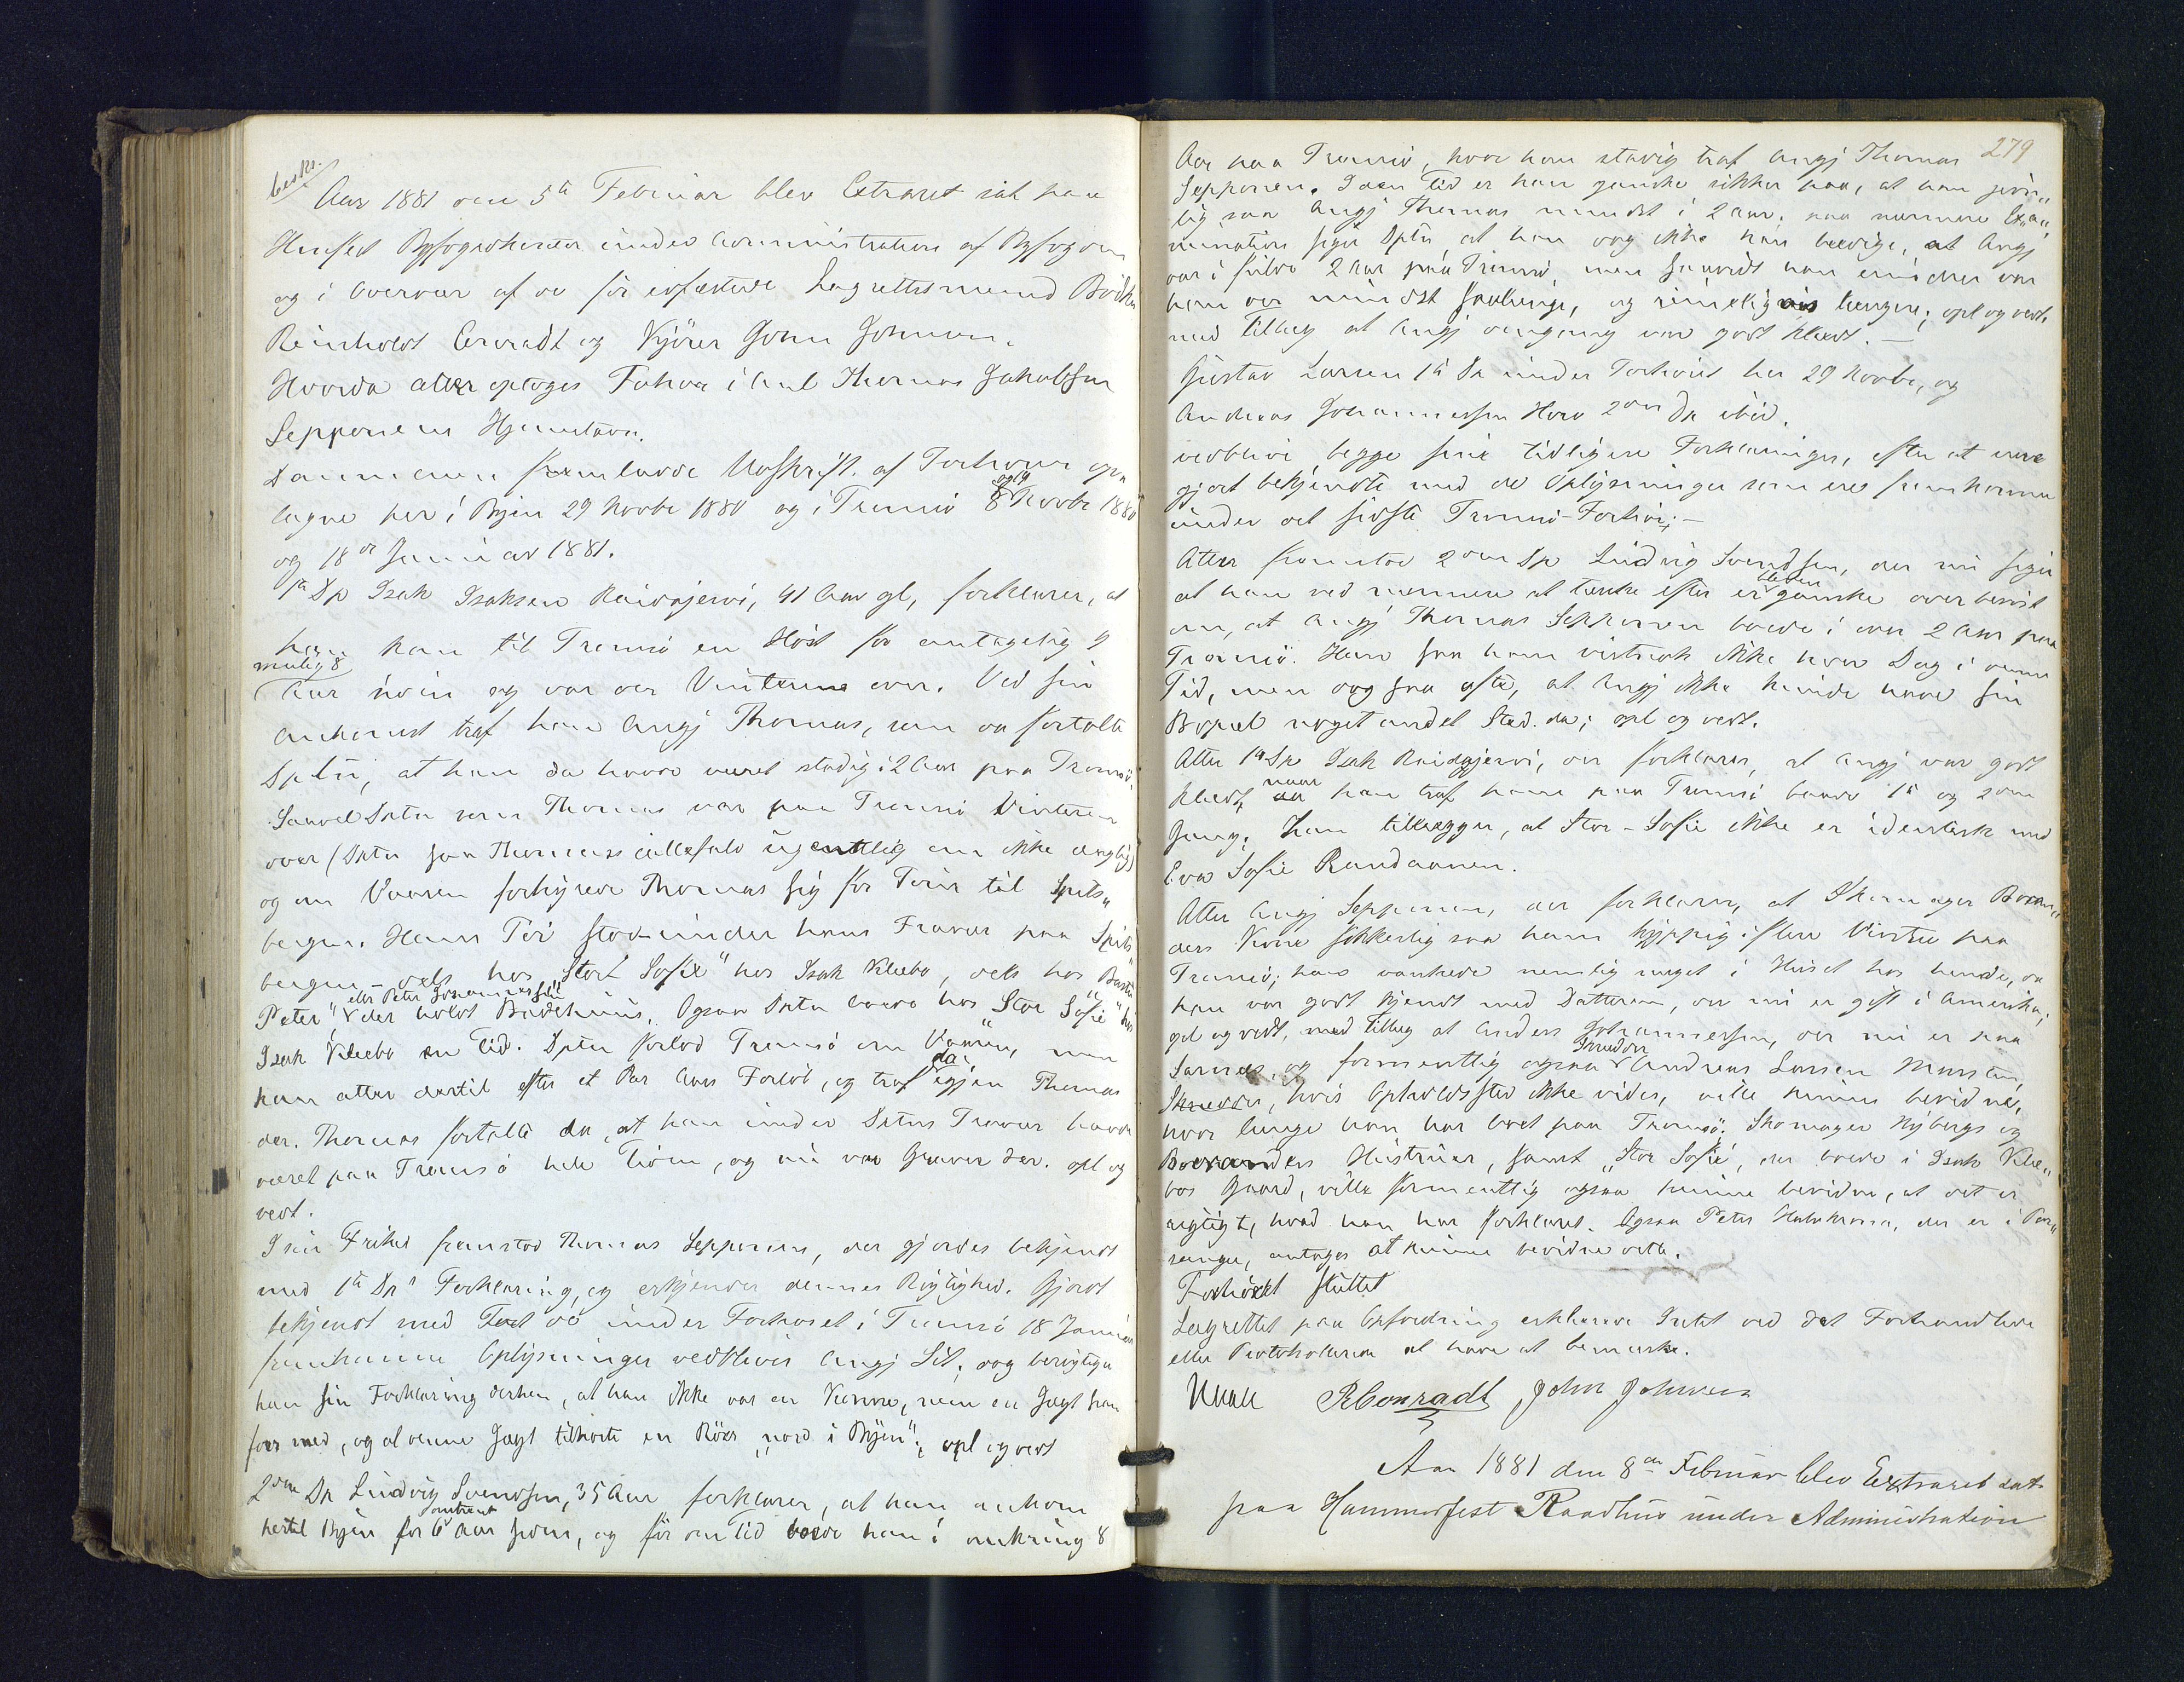 beskr.
Aar 1881 den 5te Februar blev Extraret sat paa
Hmfest Byfogedkontor under Administration af Byfogden
og i Overvær af de før edfæstede Lagrettesmænd Bødker
Reinholdt Conradt og Kjører John Johnsen.
Hvorda atter optoges Forhør i Anl Thomas Jakobsen
Sepponens Hjemstavn.
Dommeren fremlagde Udskrift af Forhører op„
tagne her i Byen 29 Novbr 1880 og i Tromsø 8 og 19 Novbr 1880
og 18de Januar 1881.
1te Dp Isak Isaksen Raidajervi, 41 Aar gl, forklarer, at
han kom til Tromsø en Høst for antagelig 9
mulig 8
Aar siden og var der Vinteren over. Ved sin
Ankomst traf han Angj Thomas, som da fortalte
Dptn, at han da havde været stadig i 2 Aar paa Tromsø.
Saavel Dptn som Thomas var paa Tromsø Vinteren
over (Dptn saa Thomas i alfald ugentlig om ikke daglig)
og om Vaaren forhyrede Thomas sig for Turer til Spits„
bergen. Hans Tøi stod under hans Fravær paa Spits„
bergen dels hos „Stor Sofie" hos Isak Klæbo, dels hos „Bastu
Peter" eller Peter Johannessen der holdt Badehuus. Ogsaa Dptn boede hos Stor Sofie hos
Isak Klæbo en Tid. Dptn forlod Tromsø om Vaaren, men
kom atter dertil efter et Par Aars Forløb, og traf da igjen Thomas
der. Thomas fortalte da, at han under Dptns Fravær havde
været paa Tromsø hele Tiden, og nu var Graver der. opl og
vedt.
I sin Frihed fremstod Thomas Sepponen, der gjordes bekjendt
med 1te Dps Forklaring, og erkjender dennes Rigtighed. Gjort
bekjendt med de under Forhøret i Tromsø 18 Januar
fremkomne Oplysninger vedbliver Angj Sit; dog berigtiger
han sin Forklaring derhen, at han ikke var en Kvæne, men en Jagt han
foer med, og at denne Jagt tilhørte en Röer „nord i Byen"; opl og vedt
2den Dp Ludvig Svendsen, 35 Aar forklarer, at han ankom
hertil Byen for omtrent 6 Aar siden, og før den Tid boede han i omkring 8
279
Aar paa Tromsø, hvor han stadig traf Angj Thomas
Sepponen. I den Tid er han ganske sikker paa, at han jevn„
lig saa Angj Thomas mindst i 2 Aar. Paa nærmere Exa„
mination siger Dptn at han dog ikke kan beedige, at Angj
var i fulde 2 Aar paa Tromsø, men saavidt han erindrer var
han der mindst saalænge, og rimeligvis længere; opl og vedt.
med Tillæg at Angj dengang var godt klædt. —
Gustav Larsen 1te Dp under Forhøret her 29 Novbr, og
Andreas Johannessen Horv 2den Dp ibid.
vedbliver begge sine tidligere Forklaringer, efter at være
gjort bekjendte med de Oplysninger som ere fremkomne
under det sidste Tromsø-Forhør; —
Atter fremstod 2den Dp Ludvig Svendsen, der nu siger
at han ved nærmere at tænke efter er bleven ganske overbevist
om, at Angj Thomas Sepponen boede i over 2 Aar paa
Tromsø. Han saa ham vistnok ikke hver Dag i denne
Tid, men dog saa ofte, at Angj ikke kunde have sin
Bopæl noget andet Sted. da; opl og vedt.
Atter 1te Dp Isak Raidajervi, der forklarer, at Angj var godt
klædt, naar han traf ham paa Tromsø baade 1te og 2den
Gang. Han tillægger, at Stor-Sofie ikke er identisk med
Eva Sofie Randaanen.
Atter Angj Sepponen, der forklarer, at Skomager Boxan„
ders Kone sikkerlig saa ham hyppig i flere Vintre paa
Tromsø; han vankede nemlig meget i Huset hos hende, da
han var godt kjendt med Datteren, der nu er gift i Amerika;
opl og vedt, med Tillæg at Anders Johannessen, der nu er paa
Sarnes, og formentlig ogsaa Smeden Andreas Larsen Marsten,
Skrædder, hvis Opholdssted ikke vides, ville kunne bevidne,
hvor længe han har boet paa Tromsø. Skomager Nybergs og
Boexanders Hustruer, samt „Stor Sofie", der boede i Isak Klæ„
bos Gaard, ville formentlig ogsaa kunne bevidne, at det er
rigtigt, hvad han har forklaret. Ogsaa Peter der er i Por„
sanger, antages at kunne bevidne dette.
Forhøret sluttet
Lagrettet paa Opfordring erklærede Intet ved det Forhandlede
eller Protokollerede at have at bemærke.
RConradt John Johnsen
Aar 1881 den 8de Februar blev Extraret sat
paa Hammerfest Raadhus under Administration